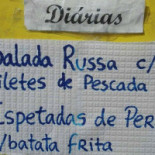 Diárias
Salada Russa c/
Filetes de Pescada
Espetadas de Per
c/batata frita